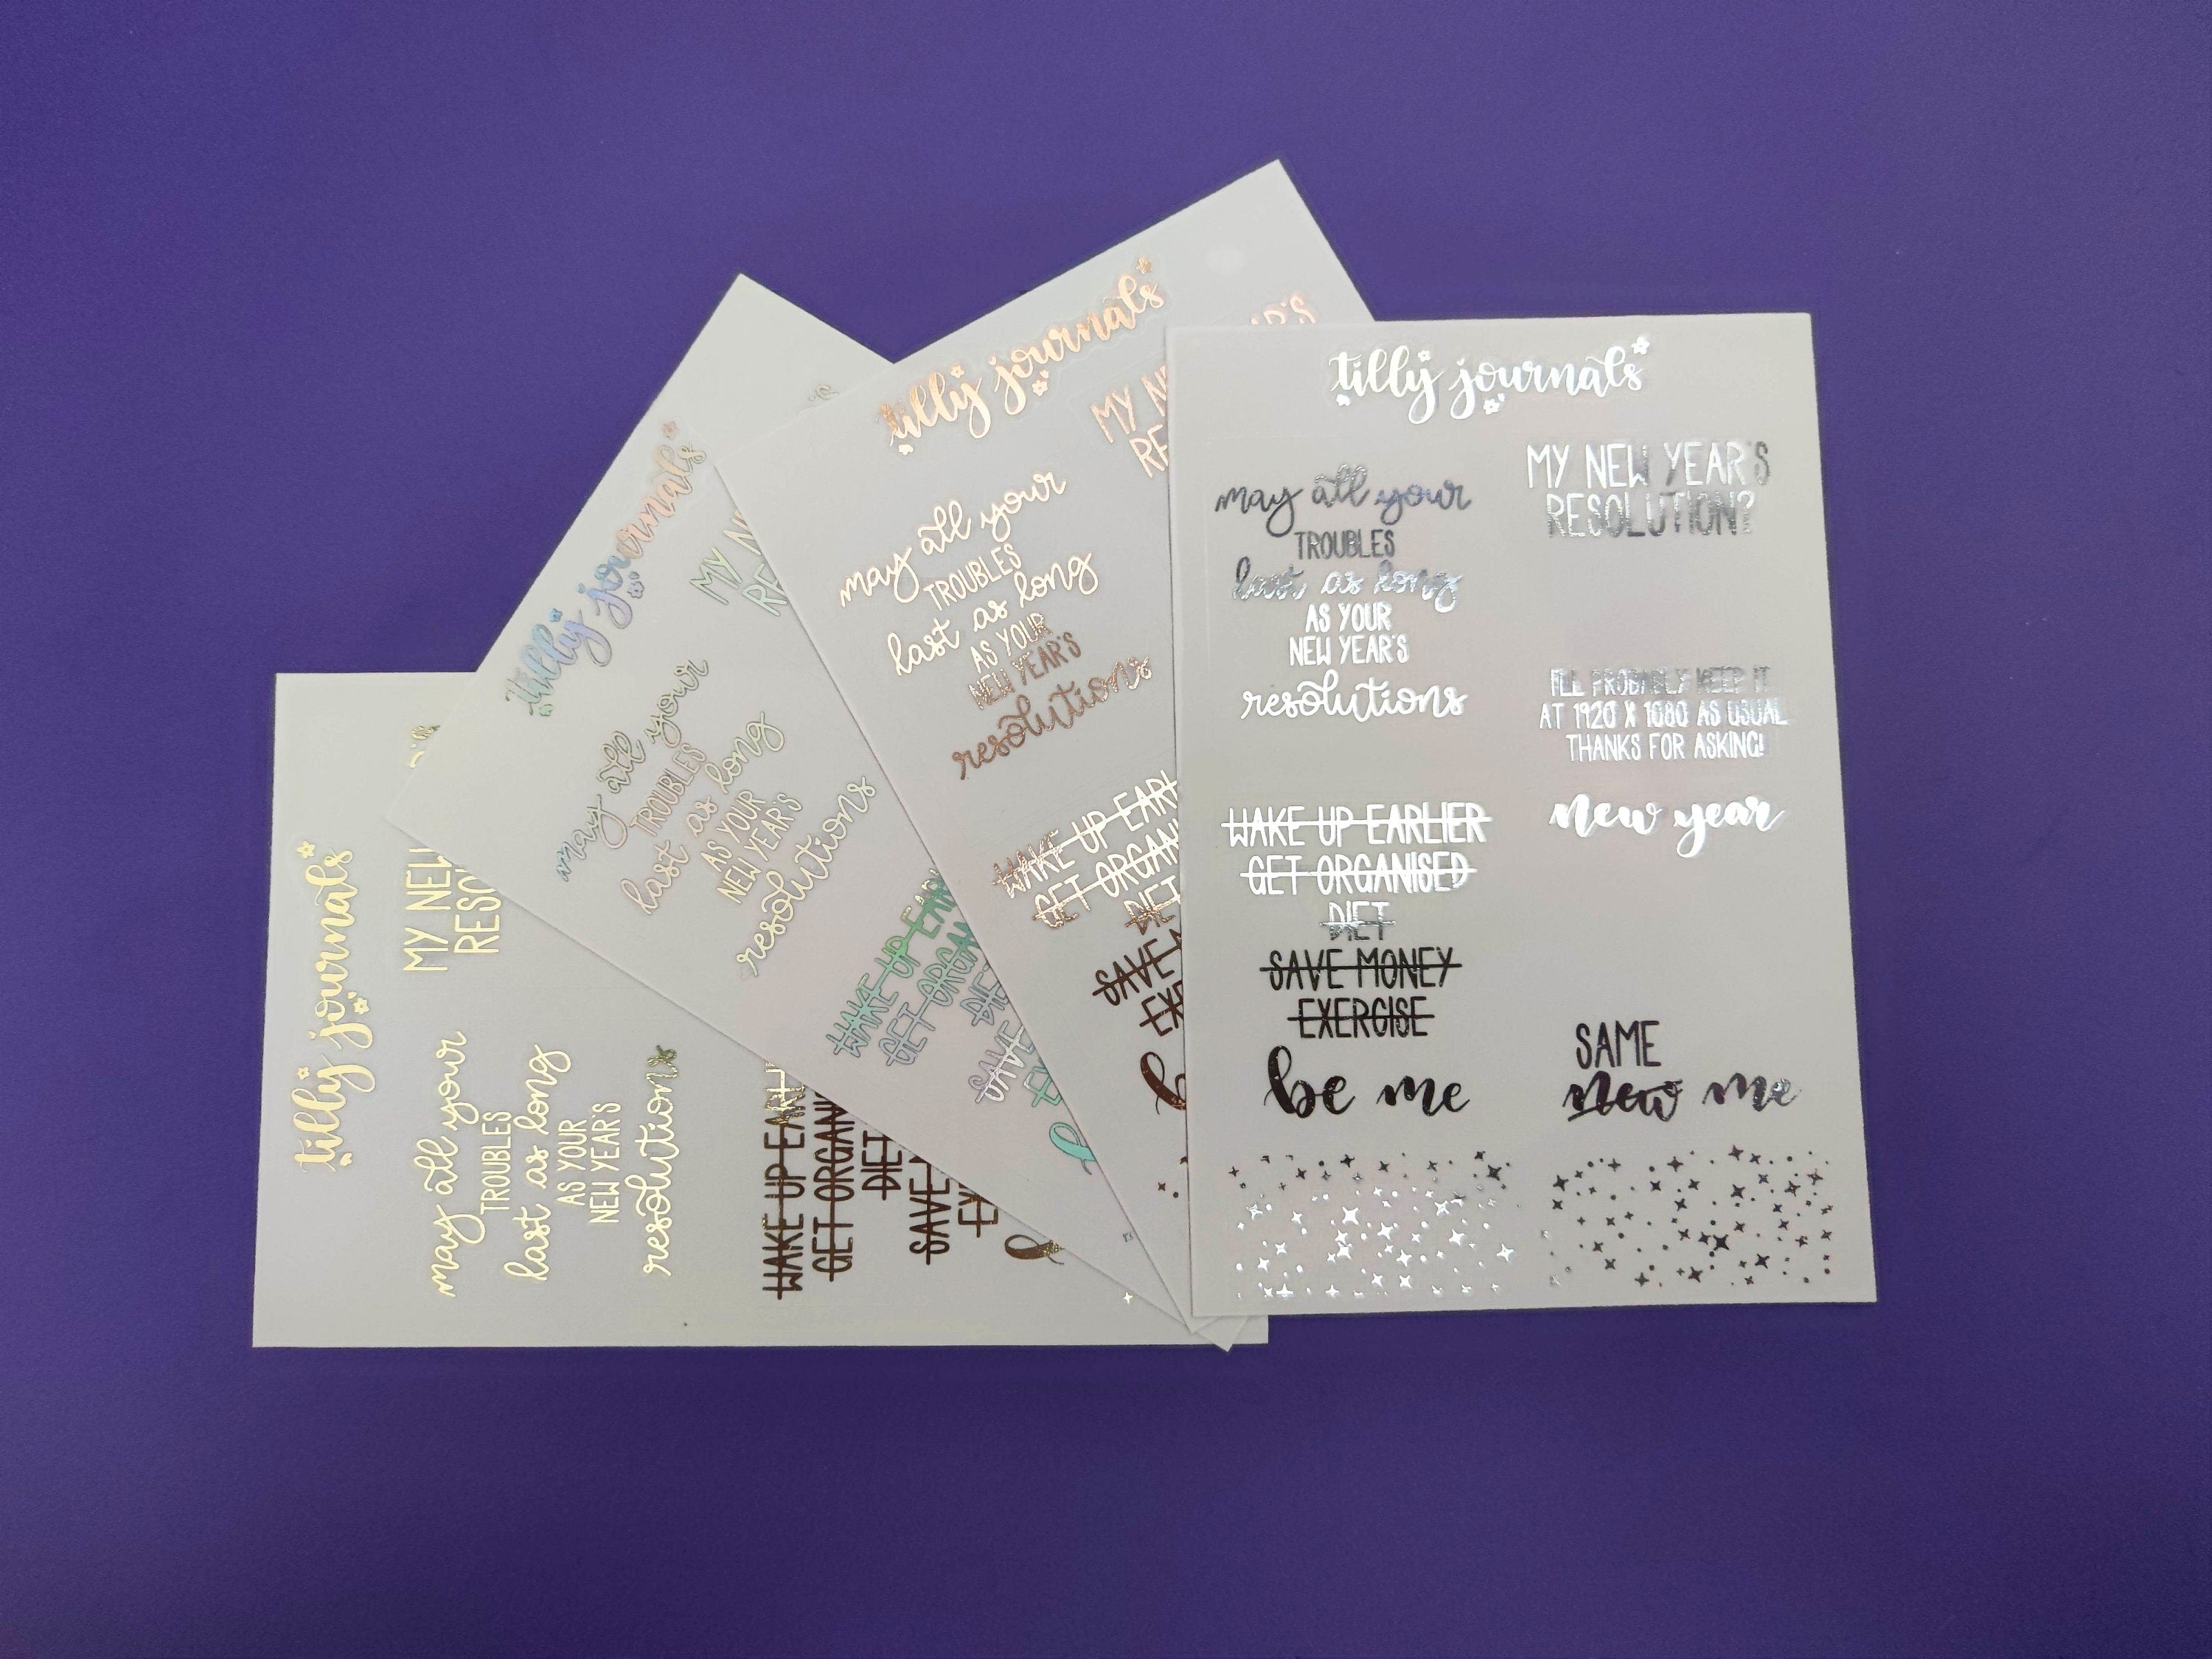 tilly journals
MY NEW
RESO
may all your
TROUBLES
last as long
AS YOUR
NEW YEAR'S
resolutions
WAKE UP EARL
GET ORGAN
DIET
SAVE
EX
tilly journals
MY NE
RE
may all your
TROUBLES
last as long
AS YOUR
NEW YEAR'S
resolutions
WAKE UP EAR
GET ORGA
DIE
SAVE
EX
tilly journals
AR'S
MY NE
RE
may all your
TROUBLES
last as long
AS YOUR
NEW YEAR'S
resolutions
WAKE UP EARL
GET ORGAN
DIE
SAVE
EXE
tilly journals
may all your
TROUBLES
last as long
AS YOUR
NEW YEAR'S
resolutions
WAKE UP EARLIER
GET ORGANISED
DIET
SAVE MONEY
EXERCISE
be me
MY NEW YEAR'S
RESOLUTION?
I'LL PROBABLY KEEP IT
AT 1920 X 1080 AS USUAL
THANKS FOR ASKING!
new year
SAME
new me